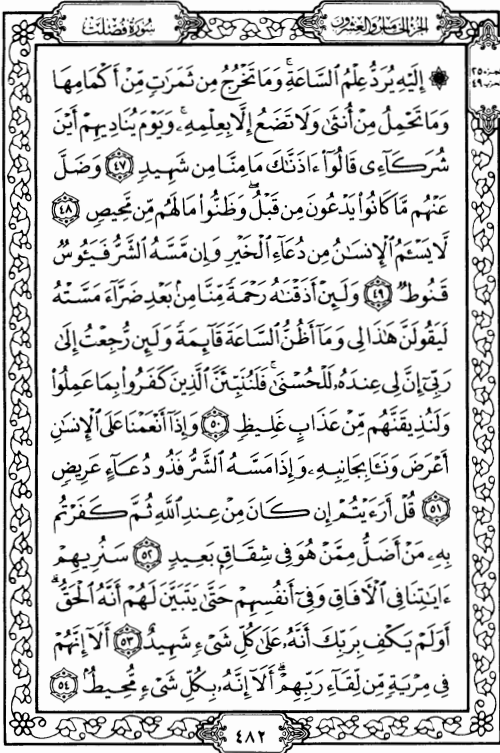 سورة فصلت
الجزء الخامس والعشرون
۞ إِلَيْهِ يُرَدُّ عِلْمُ السَّاعَةِ ۚ وَمَا تَخْرُجُ مِن ثَمَرَٰتٍ مِّنْ أَكْمَامِهَا
وَمَا تَحْمِلُ مِنْ أُنثَىٰ وَلَا تَضَعُ إِلَّا بِعِلْمِهِۦ ۚ وَيَوْمَ يُنَادِيهِمْ أَيْنَ
شُرَكَآءِى قَالُوٓا۟ ءَاذَنَّٰكَ مَا مِنَّا مِن شَهِيدٍ ٤٧ وَضَلَّ
عَنْهُم مَّا كَانُوا۟ يَدْعُونَ مِن قَبْلُ ۖ وَظَنُّوا۟ مَا لَهُم مِّن مَّحِيصٍ ٤٨
لَّا يَسْـَٔمُ الْإِنسَٰنُ مِن دُعَآءِ الْخَيْرِ وَإِن مَّسَّهُ الشَّرُّ فَيَـُٔوسٌ
قَنُوطٌ ٤٩ وَلَئِنْ أَذَقْنَٰهُ رَحْمَةً مِّنَّا مِنۢ بَعْدِ ضَرَّآءَ مَسَّتْهُ
لَيَقُولَنَّ هَٰذَا لِى وَمَآ أَظُنُّ السَّاعَةَ قَآئِمَةً وَلَئِن رُّجِعْتُ إِلَىٰ
رَبِّىٓ إِنَّ لِى عِندَهُۥ لَلْحُسْنَىٰ ۚ فَلَنُنَبِّئَنَّ الَّذِينَ كَفَرُوا۟ بِمَا عَمِلُوا۟
وَلَنُذِيقَنَّهُم مِّنْ عَذَابٍ غَلِيظٍ ٥٠ وَإِذَآ أَنْعَمْنَا عَلَى الْإِنسَٰنِ
أَعْرَضَ وَنَـَٔا بِجَانِبِهِۦ وَإِذَا مَسَّهُ الشَّرُّ فَذُو دُعَآءٍ عَرِيضٍ
٥١ قُلْ أَرَءَيْتُمْ إِن كَانَ مِنْ عِندِ اللَّهِ ثُمَّ كَفَرْتُم
بِهِۦ مَنْ أَضَلُّ مِمَّنْ هُوَ فِى شِقَاقٍۭ بَعِيدٍ ٥٢ سَنُرِيهِمْ
ءَايَٰتِنَا فِى الْءَافَاقِ وَفِىٓ أَنفُسِهِمْ حَتَّىٰ يَتَبَيَّنَ لَهُمْ أَنَّهُ الْحَقُّ ۗ
أَوَلَمْ يَكْفِ بِرَبِّكَ أَنَّهُۥ عَلَىٰ كُلِّ شَىْءٍ شَهِيدٌ ٥٣ أَلَآ إِنَّهُمْ
فِى مِرْيَةٍ مِّن لِّقَآءِ رَبِّهِمْ ۗ أَلَآ إِنَّهُۥ بِكُلِّ شَىْءٍ مُّحِيطٌۢ ٥٤
٤٨٢